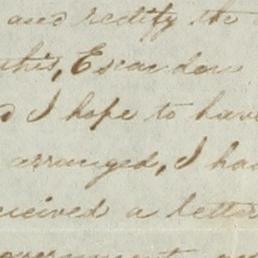 and rectify the
this, Escandon
I hope to have
arranged, I had
received a letter
government